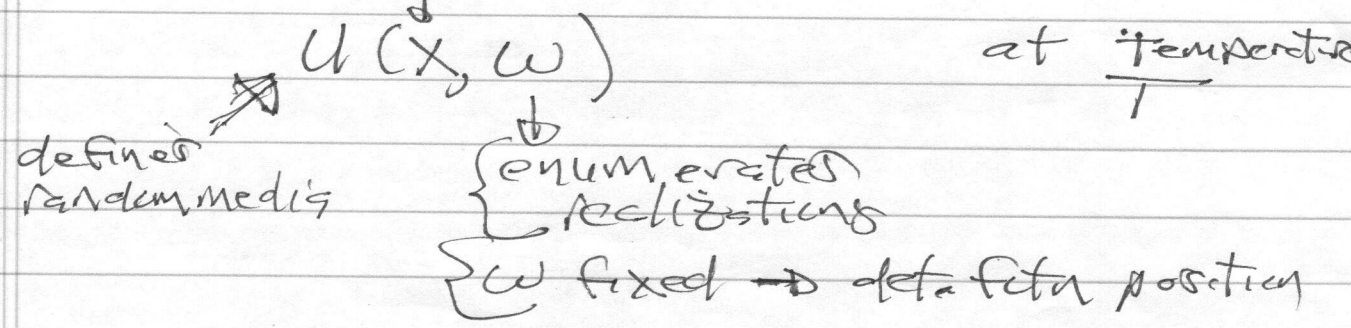 U(x, ω) at temperature T
defines
random media
enumerates
realizations
ω fixed → det. fctn position